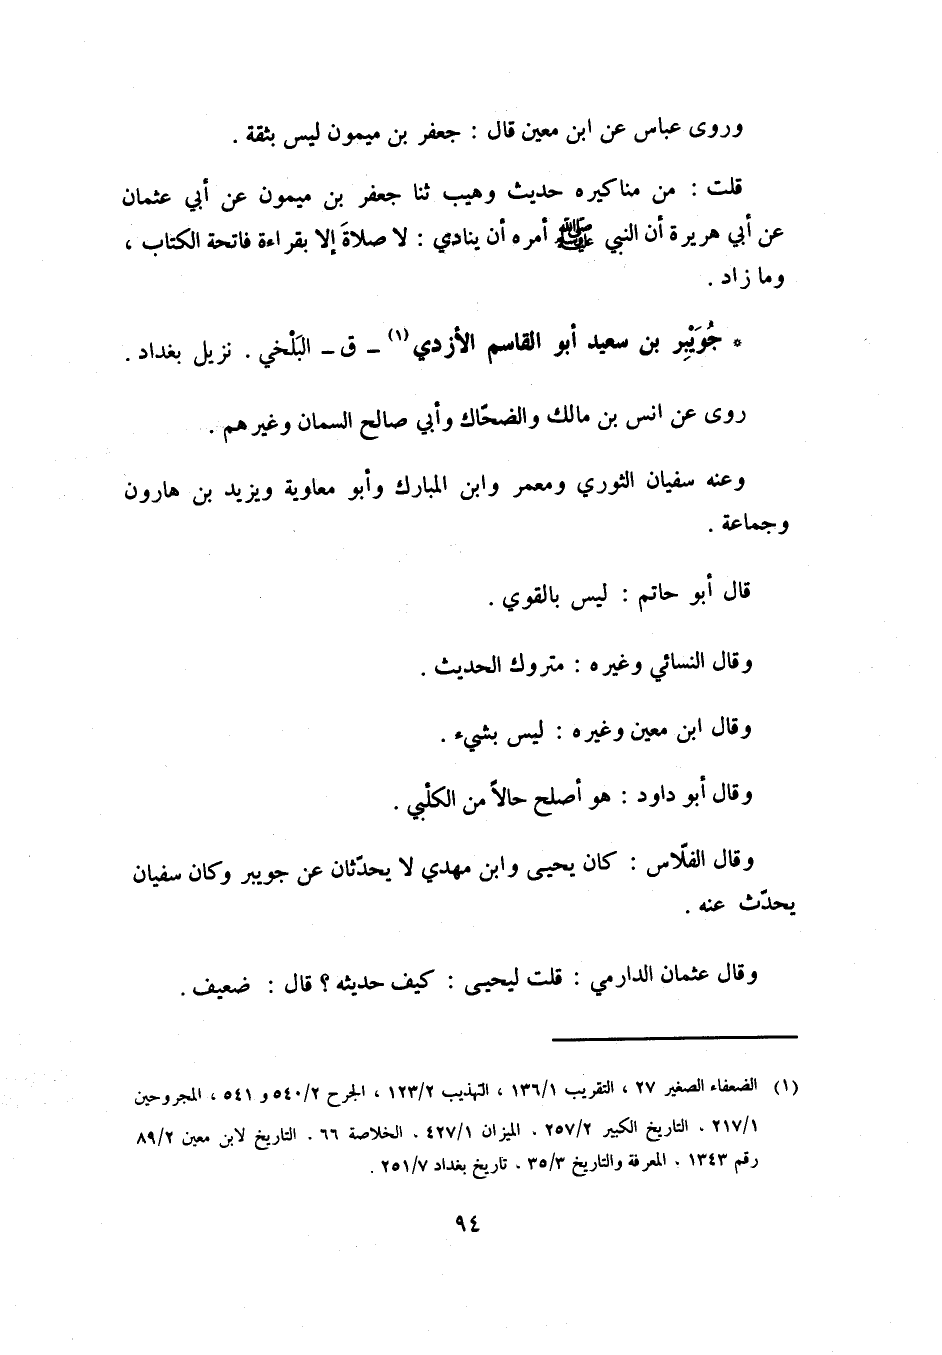 وروى عباس عن ابن معين قال : جعفر بن ميمون ليس بثقة .
قلت : من مناكيره حديث وهيب ثنا جعفر بن ميمون عن أبي عثمان
عن أبي هريرة أن النبي ﷺ أمره أن ينادي : لا صلاةَ إلا بقراءة فاتحة الكتاب ،
وما زاد .
* جُوَيْبِر بن سعيد أبو القاسم الأزدي (١) ـ ق ـ البَلْخي . نزيل بغداد .
روى عن انس بن مالك والضحّاك وأبي صالح السمان وغيرهم .
وعنه سفيان الثوري ومعمر وابن المبارك وأبو معاوية ويزيد بن هارون
وجماعة .
قال أبو حاتم : ليس بالقوي .
وقال النسائي وغيره : متروك الحديث .
وقال ابن معين وغيره : ليس بشيء .
وقال أبو داود : هو أصلح حالاً من الكلْبي .
وقال الفلّاس : كان يحيى وابن مهدي لا يحدّثان عن جويبر وكان سفيان
يحدّث عنه .
وقال عثمان الدارمي : قلت ليحيى : كيف حديثه ؟ قال : ضعيف .
(١) الضعفاء الصغير ٢٧ ، التقريب ١٣٦/١ ، التهذيب ١٢٣/٢ ، الجرح ٥٤٠/٢ و ٥٤١ ، المجروحين
٢١٧/١ . التاريخ الكبير ٢٥٧/٢ . الميزان ٤٢٧/١ . الخلاصة ٦٦ . التاريخ لابن معين ٨٩/٢
رقم ١٣٤٣ . المعرفة والتاريخ ٣٥/٣ . تاريخ بغداد ٢٥١/٧ .
٩٤